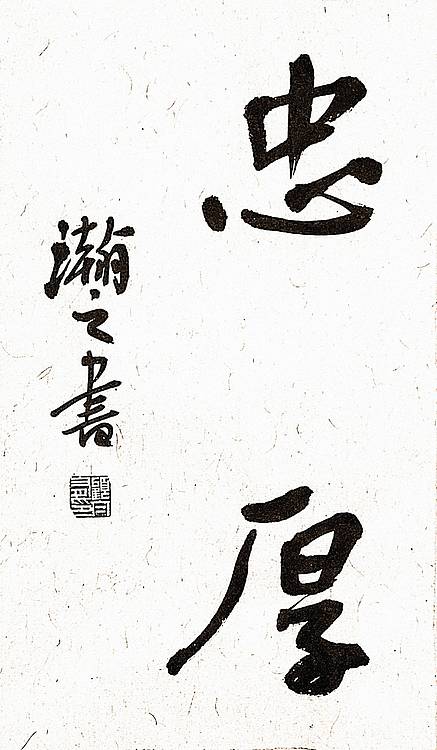 忠厚
瀚之書